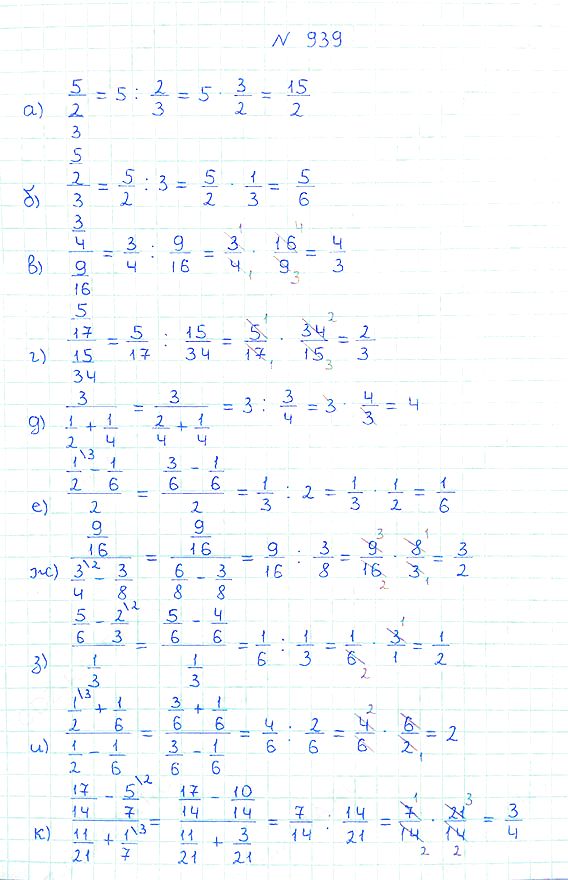 N 939
а) 5/(2/3) = 5 : 2/3 = 5 · 3/2 = 15/2
б) (5/2)/3 = 5/2 : 3 = 5/2 · 1/3 = 5/6
в) (3/4)/(9/16) = 3/4 : 9/16 = 3/4 · 16/9 = 4/3
г) (5/17)/(15/34) = 5/17 : 15/34 = 5/17 · 34/15 = 2/3
д) 3/(1/2 + 1/4) = 3/(2/4 + 1/4) = 3 : 3/4 = 3 · 4/3 = 4
е) (1/2\3 - 1/6)/2 = (3/6 - 1/6)/2 = 1/3 : 2 = 1/3 · 1/2 = 1/6
ж) (9/16)/(3/4\2 - 3/8) = (9/16)/(6/8 - 3/8) = 9/16 : 3/8 = 9/16 · 8/3 = 3/2
з) (5/6 - 2/3\2)/(1/3) = (5/6 - 4/6)/(1/3) = 1/6 : 1/3 = 1/6 · 3/1 = 1/2
и) (1/2\3 + 1/6)/(1/2 - 1/6) = (3/6 + 1/6)/(3/6 - 1/6) = 4/6 : 2/6 = 4/6 · 6/2 = 2
к) (17/14 - 5/7\2)/(11/21 + 1/7\3) = (17/14 - 10/14)/(11/21 + 3/21) = 7/14 : 14/21 = 7/14 · 21/14 = 3/4